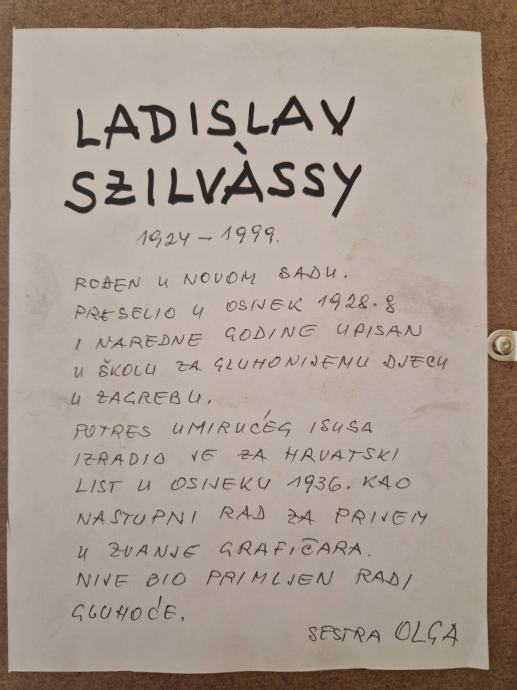 LADISLAV
SZILVÀSSY
1924 – 1999.
ROĐEN U NOVOM SADU.
PRESELIO U OSIJEK 1928. g
I NAREDNE GODINE UPISAN
U ŠKOLU ZA GLUHONIJEMU DJECU
U ZAGREBU.
POTRES UMIRUĆEG ISUSA
IZRADIO JE ZA HRVATSKI
LIST U OSIJEKU 1936. KAO
NASTUPNI RAD ZA PRIJEM
U ZVANJE GRAFIČARA.
NIJE BIO PRIMLJEN RADI
GLUHOĆE.
SESTRA OLGA